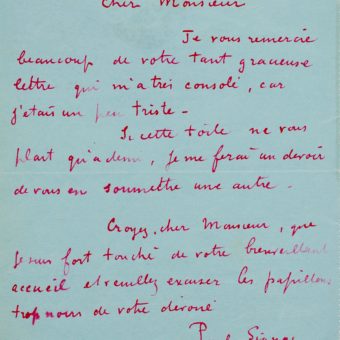 Cher Monsieur
Je vous remercie
beaucoup de votre tant gracieuse
lettre qui m'a très consolé, car
j'étais un peu triste -
Si cette toile ne vous
plait qu'à demi, je me ferai un devoir
de vous en soumettre une autre -
Croyez, cher Monsieur, que
je suis fort touché de votre bienveillant
accueil et veuillez excuser les papillons
trop noirs de votre dévoué
P Signac